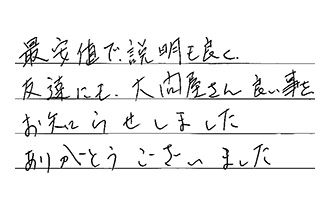 最安値で.説明も良く.
友達にも.大問屋さん良い事を
お知らせしました
ありがとうございました